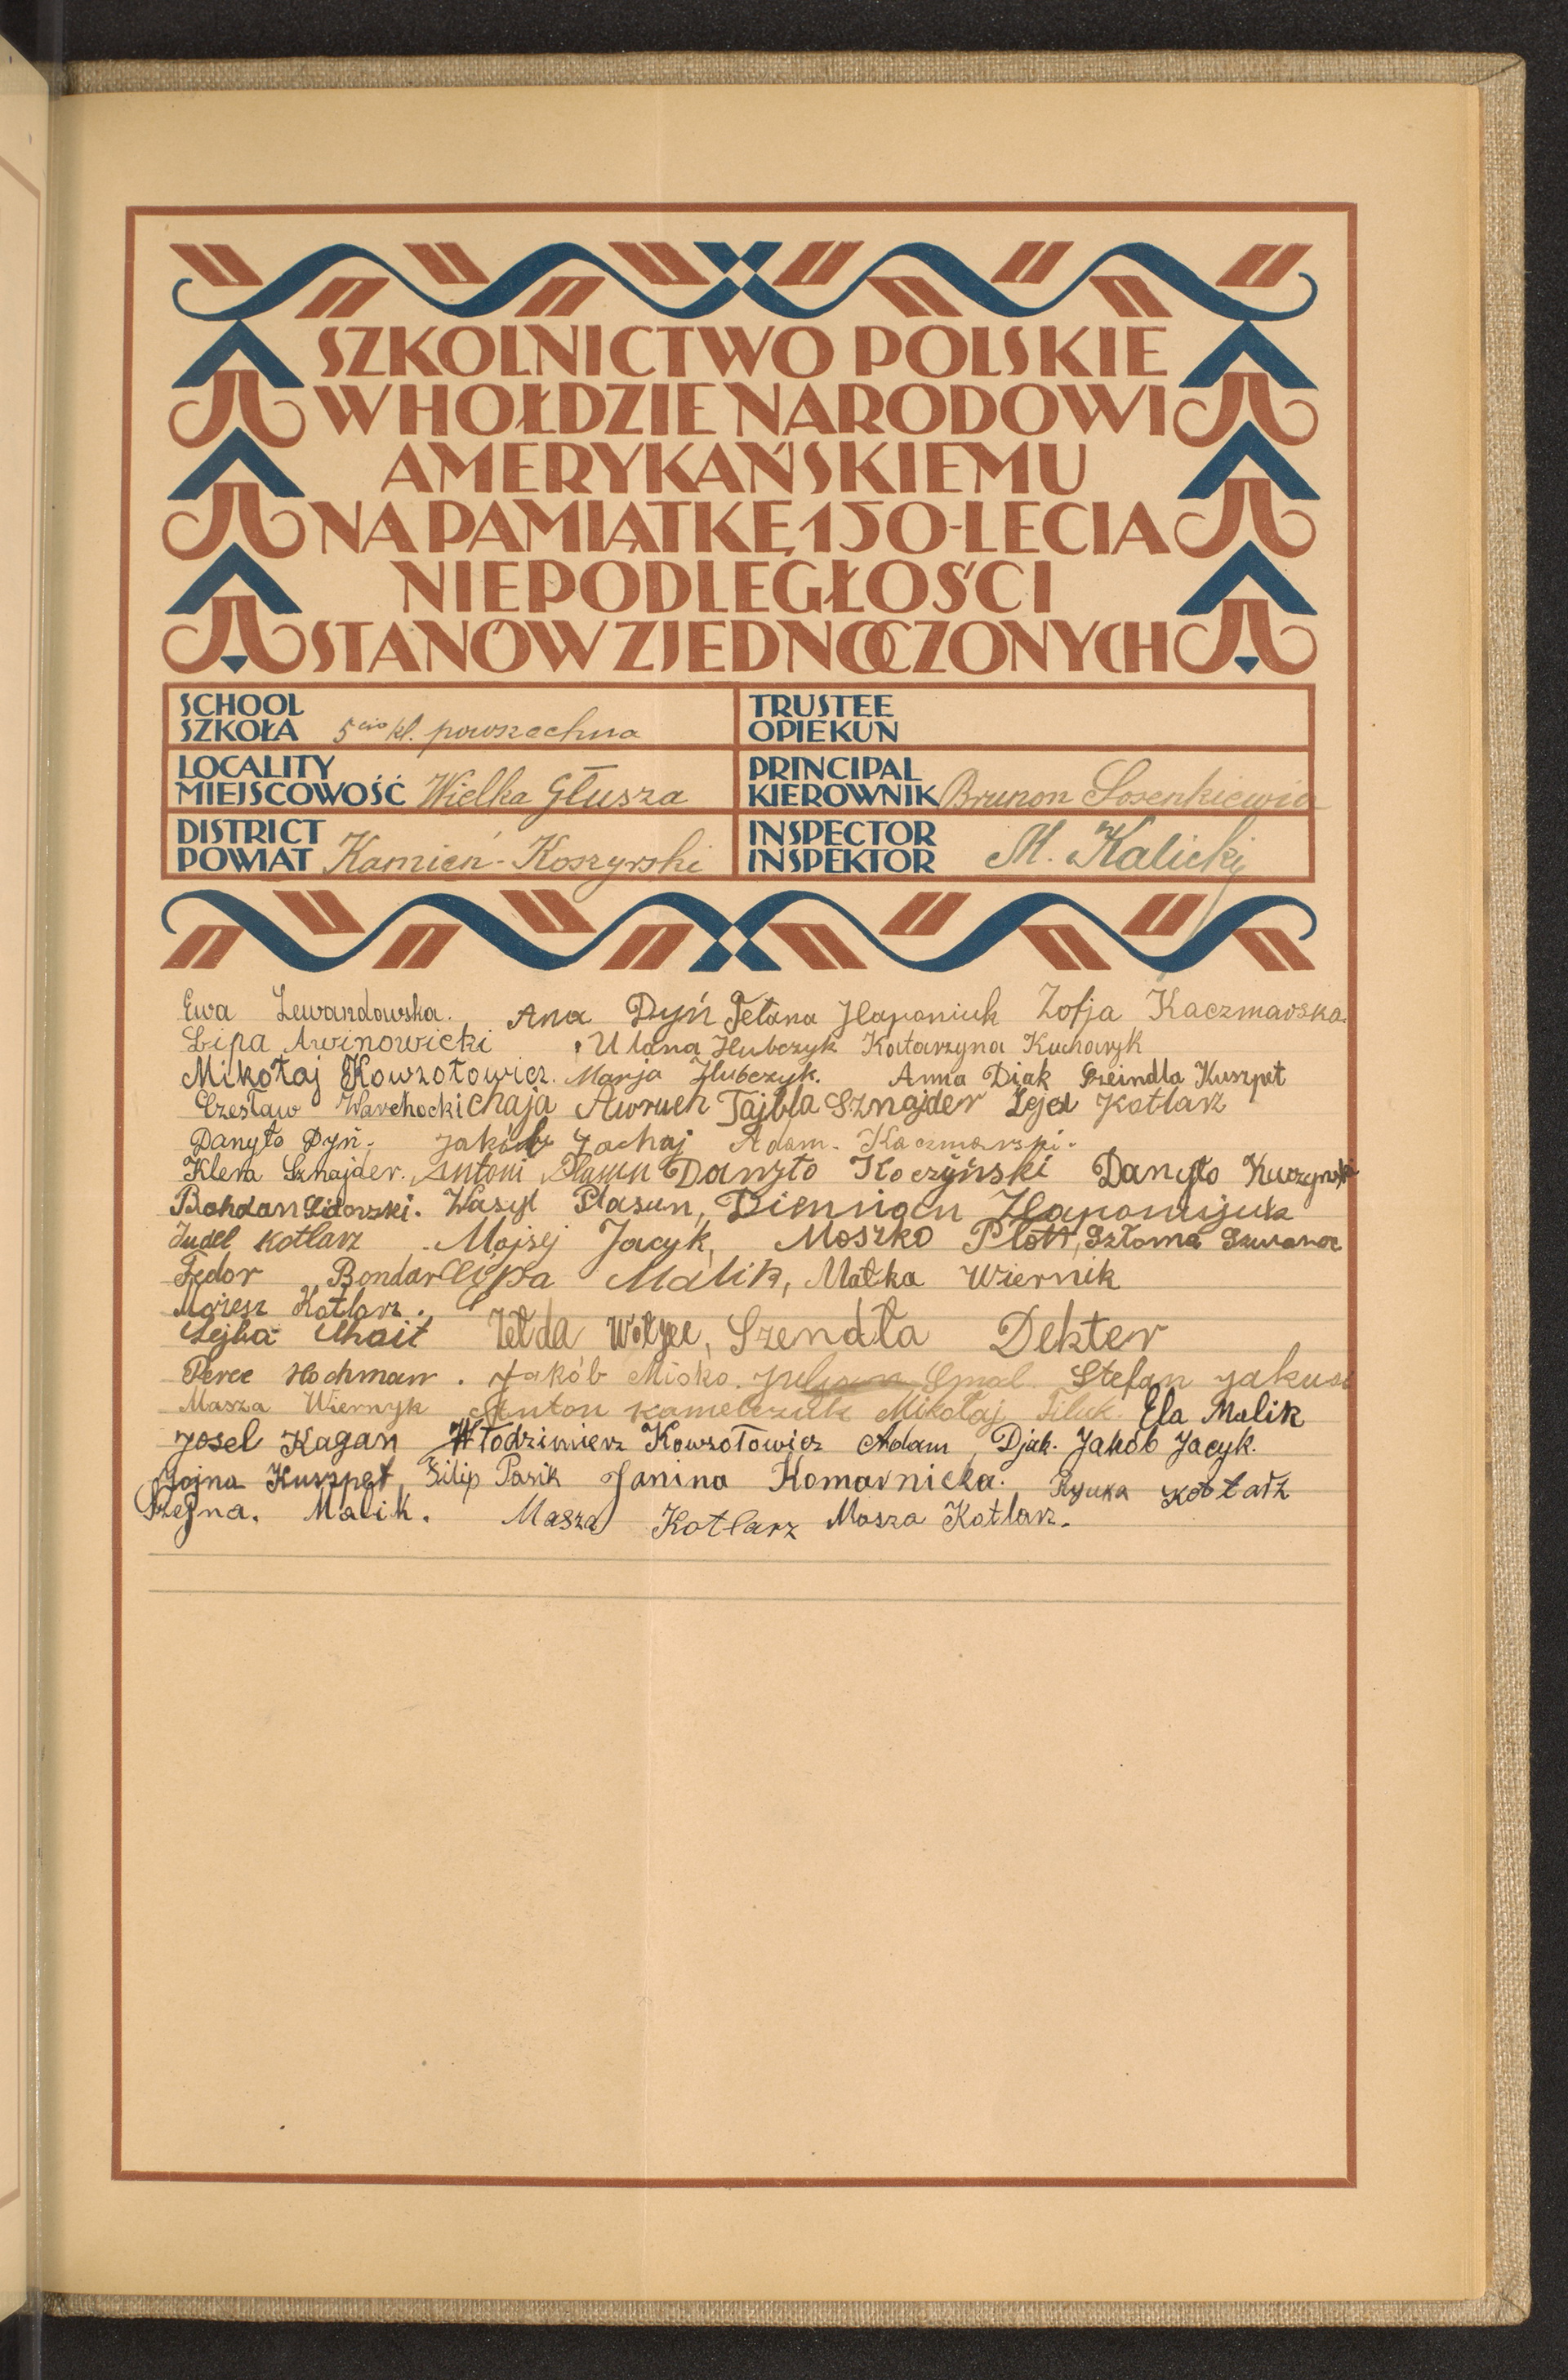 SZKOLNICTWO POLSKIE
W HOŁDZIE NARODOWI
AMERYKAŃSKIEMU
NA PAMIĄTKĘ 150-LECIA
NIEPODLEGŁOŚCI
STANÓW ZJEDNOCZONYCH
SCHOOL
SZKOŁA 5cio kl. powszechna
TRUSTEE
OPIEKUN
LOCALITY
MIEJSCOWOŚĆ Wielka Głusza
PRINCIPAL
KIEROWNIK Brunon Sosenkiewicz
DISTRICT
POWIAT Kamień-Koszyrski
INSPECTOR
INSPEKTOR M. Kalicki
Ewa Lewandowska. Ana Dyń Tetana Haponiuk Zofja Kaczmarska.
Lipa Awinowicki Ulana Hubczyk Katarzyna Kucharyk
Mikołaj Kowzołowicz. Marja Hubczyk. Anna Diak Kuszpet
Czesław Warchocki Chaja Awruch Tajbla Sznajder Kotlarz
Danyło Dyń, Jakób Jachaj Adam Kaczmarski.
Sznajder. Antoni Danyło Koczyński Danyło
Bohdan Wasyl Plasun,
Judel Kotlarz Mojsej Jacyk, Moszko Szloma
Fedor Bondar Cipa Malik, Matka Wiernik
Mojżesz Kotlarz.
Lejba Chait Zelda Szendla Dekter
Perec Hochman. Jakób Misko. Smal. Stefan
Masza Wiernyk Anton Mikołaj Ela Malik
Josel Kagan Włodzimierz Kowzołowicz Adam Djak. Jakób Jacyk.
Jojna Kuszpet, Filip Pasik Janina Komarnicka. Kotlarz
Malik. Masza Kotlarz Masza Kotlarz.